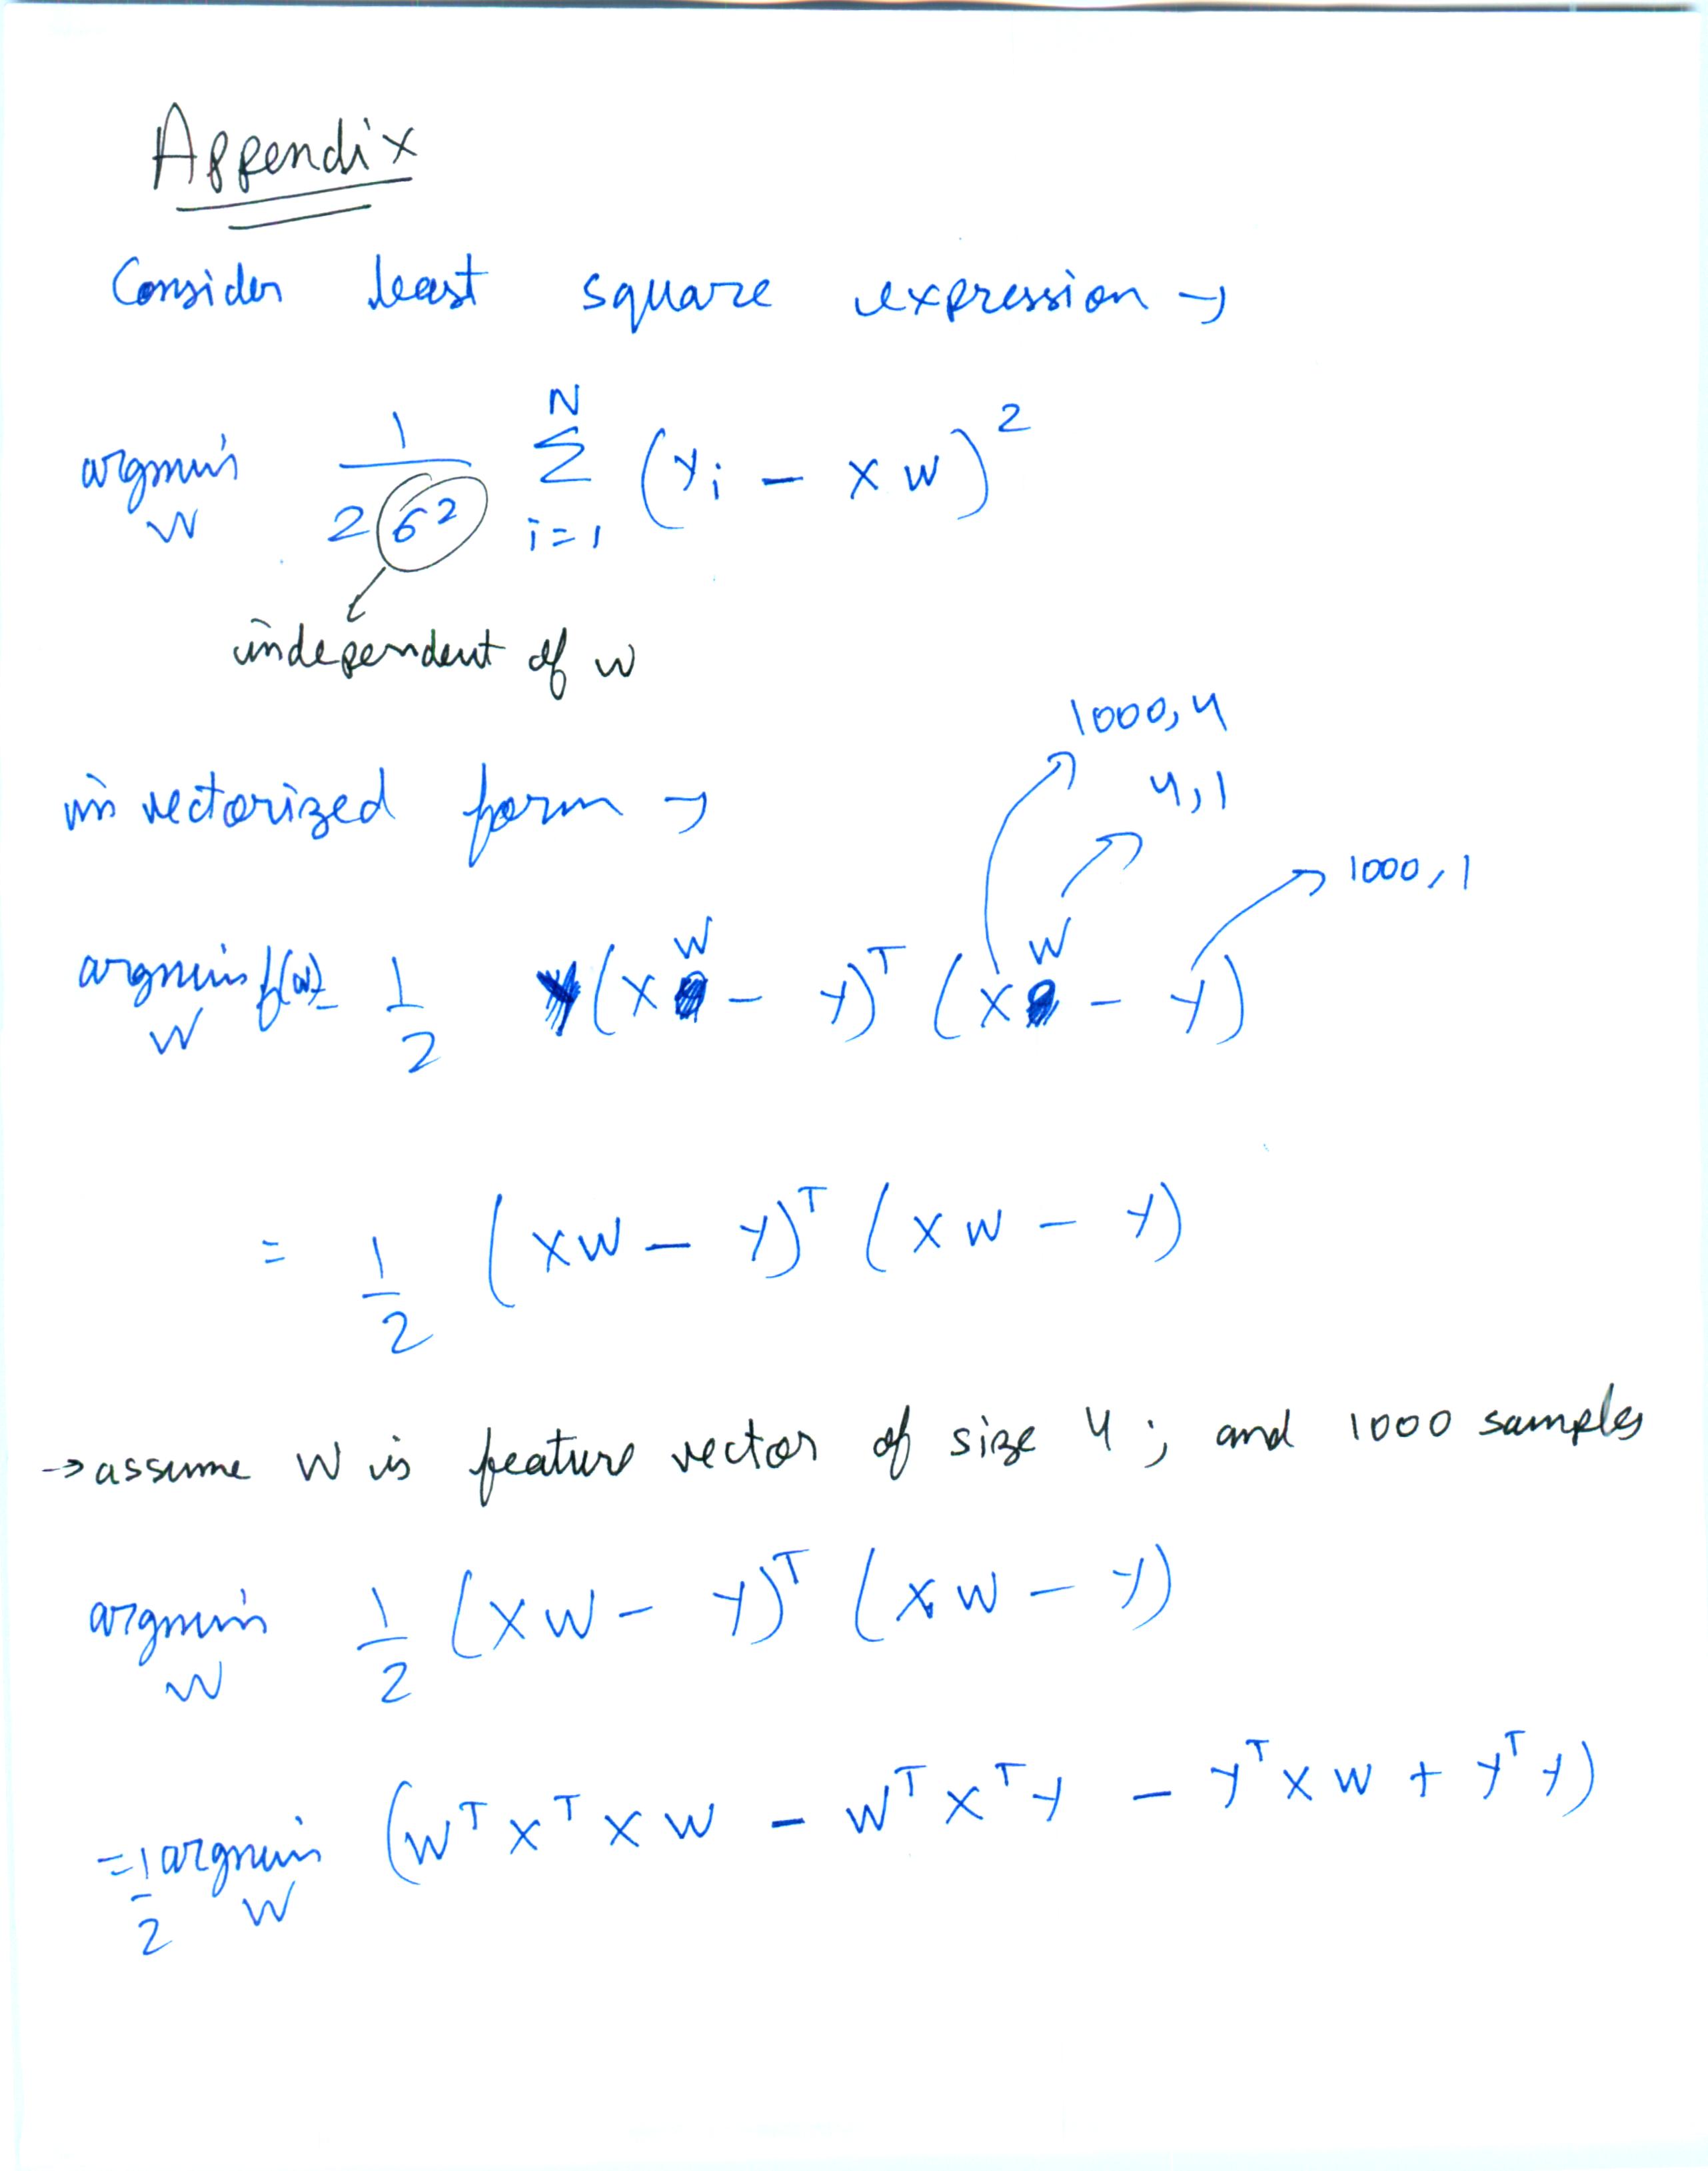 Appendix
Consider least square expression →
argmin_W 1/(2σ²) Σ_{i=1}^{N} (y_i − xw)²
independent of w
in vectorized form →
1000, 4
4, 1
1000, 1
argmin_W f(w) = 1/2 (XW − y)ᵀ (XW − y)
= 1/2 (XW − y)ᵀ (XW − y)
→ assume W is feature vector of size 4; and 1000 samples
argmin_W 1/2 (XW − y)ᵀ (XW − y)
= 1/2 argmin_W (Wᵀ Xᵀ X W − Wᵀ Xᵀ y − yᵀ X W + yᵀ y)